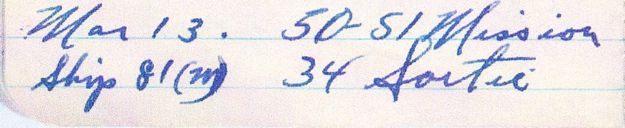 Mar 13. 50-51 Mission
Ship 81(M) 34 Sortie